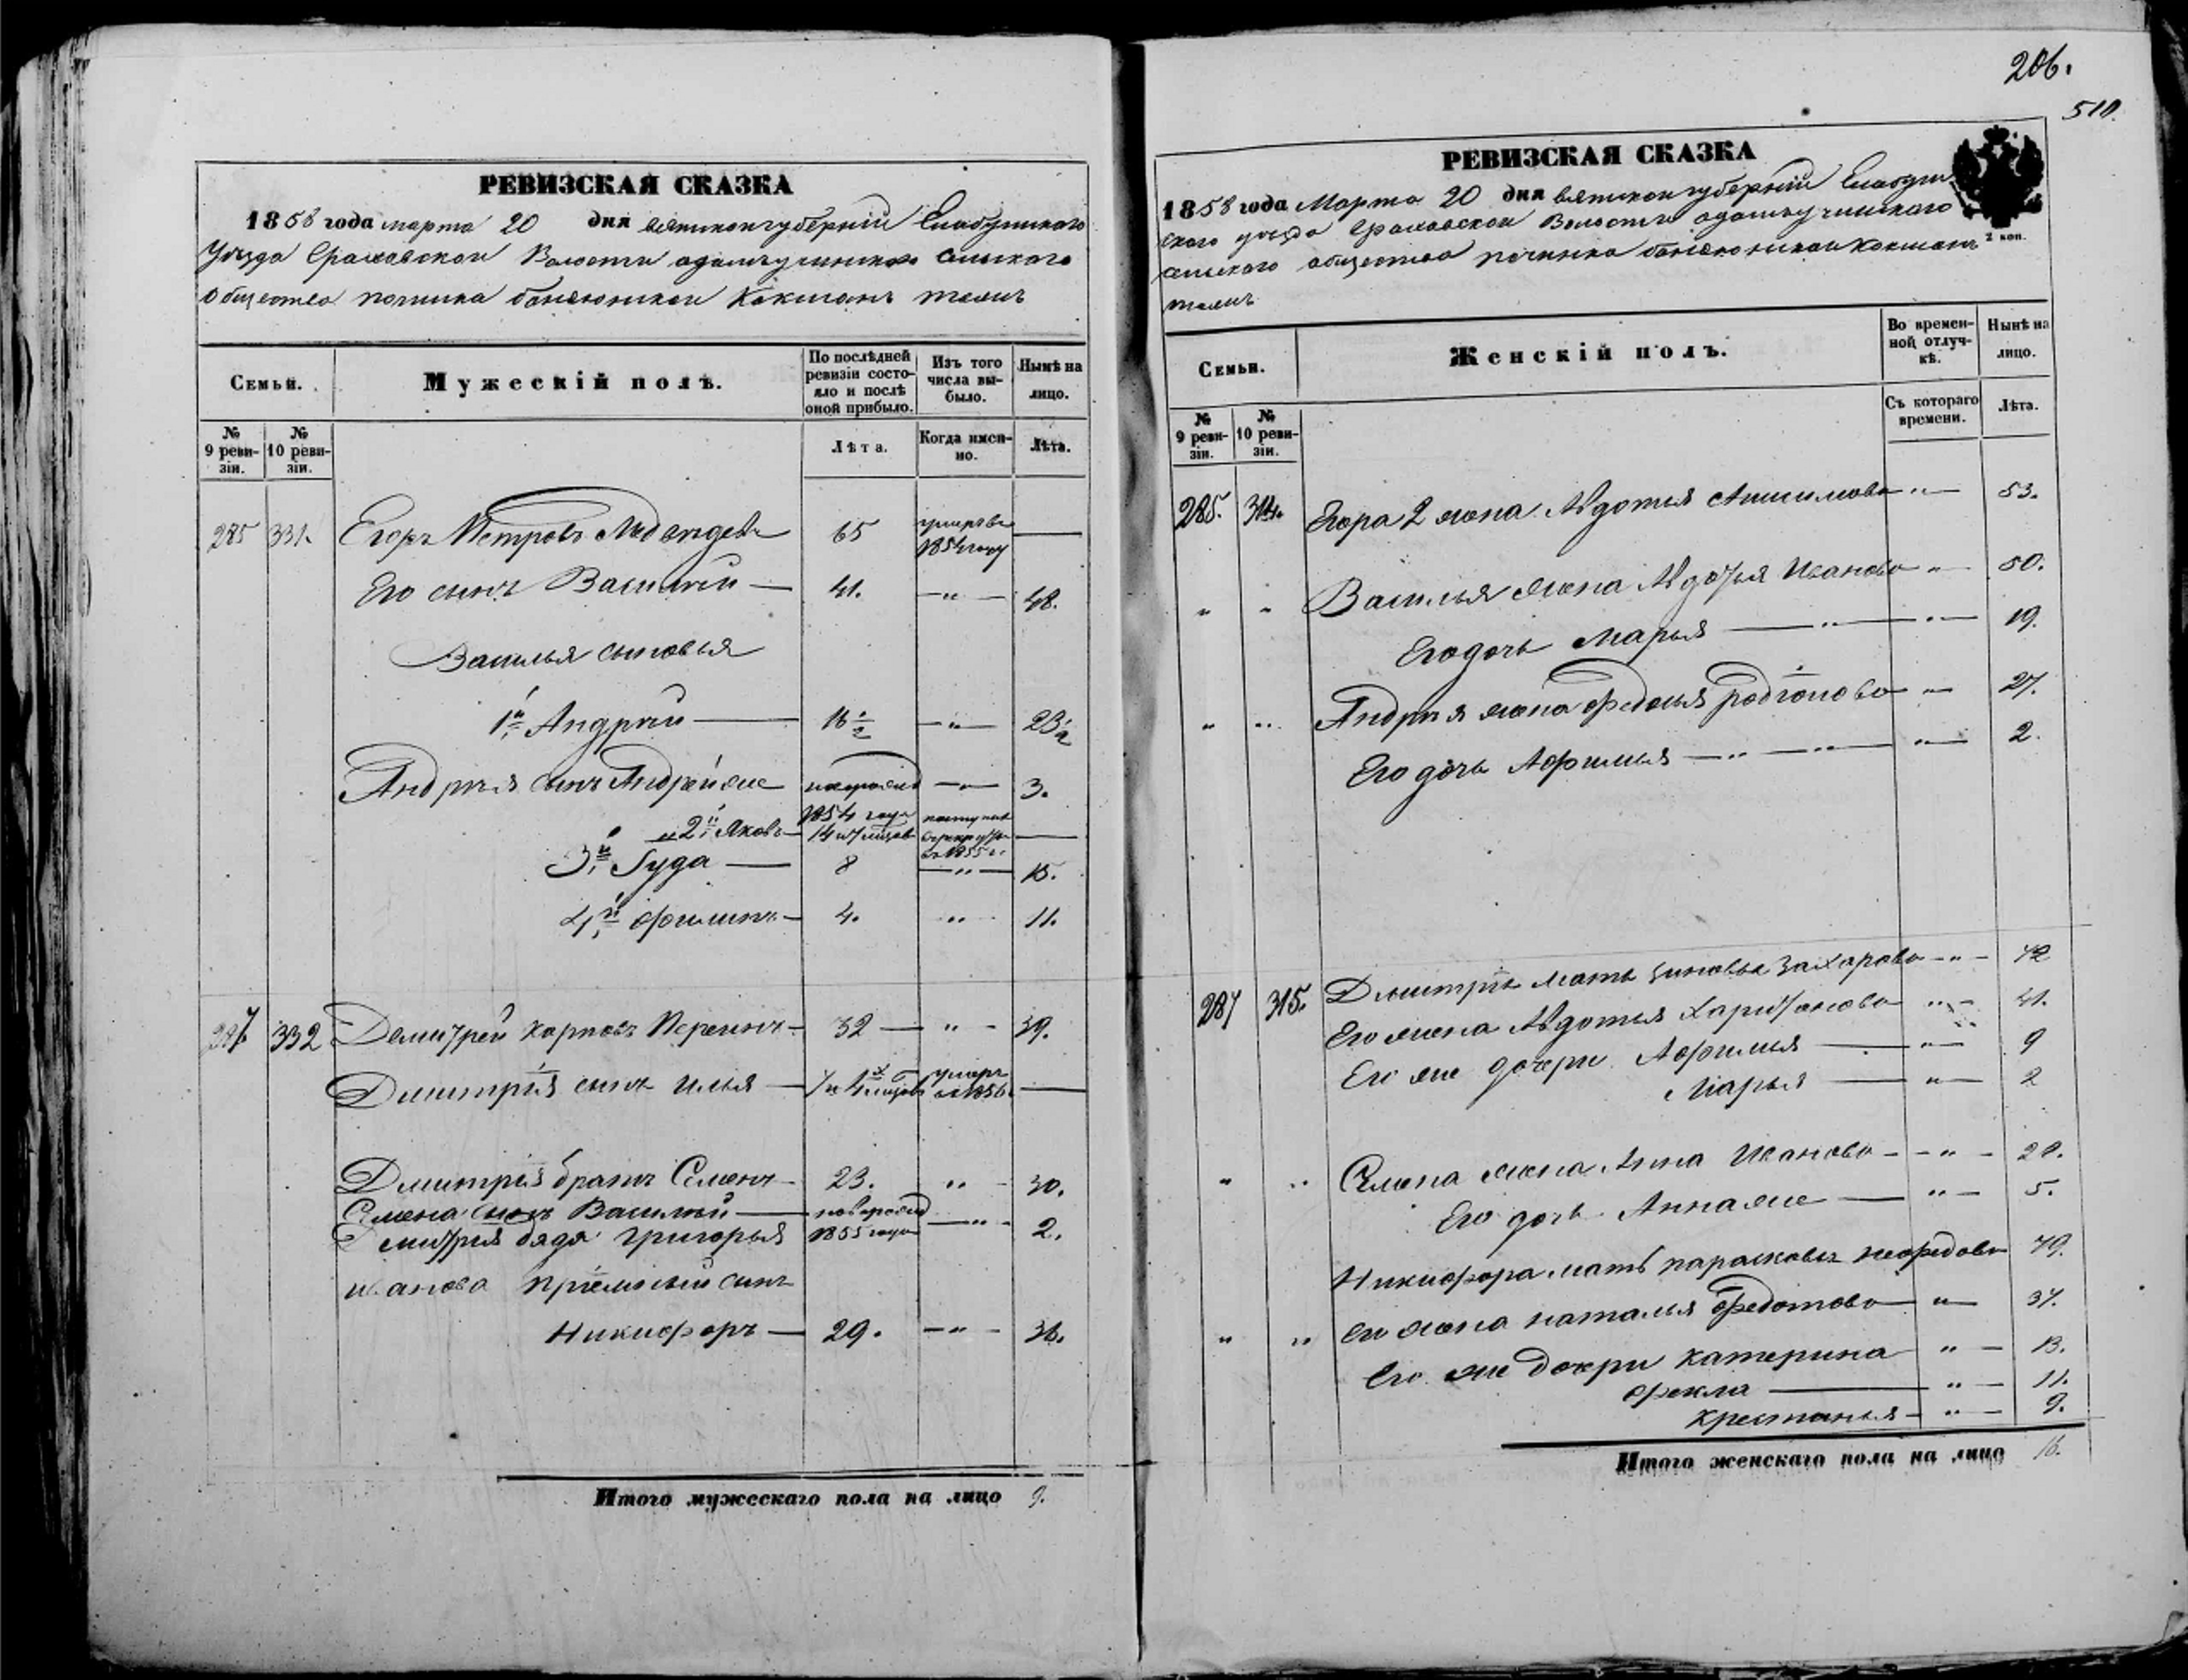 РЕВИЗСКАЯ СКАЗКА
1858 года марта 20 дня вятской губерній Елабужскаго
Уезда Граховской Волости адамъучинскаго сельскаго
Общества починка бандюжской Кокшанъ тожъ
Семьи.
Мужескій полъ.
По послѣдней
ревизіи состо-
яло и послѣ
оной прибыло.
Изъ того
числа вы-
было.
Нынѣ на
лицо.
№
9 реви-
зіи.
№
10 реви-
зіи.
Лѣта.
Когда имен-
но.
Лѣта.
285 331. Егоръ Петровъ Медведевъ 65 умеръ въ 1854 году —
Его сынъ Василий — 41. —"— 48.
Василья сыновья
1й Андрей — 16 1/2 —"— 23 1/2
Андрея сынъ Андрей же —"— 3.
1854 года
2й Яковъ 14 и 7 месцов в 1855 г. —
3й Іуда — 8 —"— 15.
4й Филипъ — 4. " 11.
287 332 Демитрей Карповъ — 32 — " - 39.
Дмитрия сынъ Илья — 7 и 4 месцов умеръ в 1856 —
Дмитрия братъ Семенъ — 23. " - 30.
Семена сынъ Василий — новорожд
Дмитрия дядя Григорья 1855 года —"- 2.
иванова приемный сынъ
Никифоръ — 29. —"- 36.
Итого мужескаго пола на лицо 9.
206.
510.
РЕВИЗСКАЯ СКАЗКА
2 коп.
1858 года Марта 20 дня вятской губерній Елабуж
скаго уезда Граховской Волости адамъучинскаго
сельскаго общества починка бандюжской Кокшанъ
тожъ
Семьи.
Женскій полъ.
Во времен-
ной отлуч-
кѣ.
Нынѣ на
лицо.
№
9 реви-
зіи.
№
10 реви-
зіи.
Съ котораго
времени.
Лѣта.
285. 314. Егора 2 жена Авдотья "— 53.
" " Василья жена Авдотья Иванова " — 50.
Его дочь Марья — " — " — 19.
" " Андрея жена Федосья Родіонова "— 27.
Его дочь Афимья — " — " — "— 2.
287 315. Дмитрія мать Зиновья Захарова - " - 72
Его жена Авдотья Харитонова " - 41.
Его же дочери Афимья — "— 9
Марья — "— 2
" " Семена жена Анна Иванова - - " - 29.
Его дочь Анна же — " — 5.
Никифора мать парасковья 79.
" " Его жена наталья Федотова "— 37.
Его же дочери Катерина " — 13.
фекла — " — 11.
Крестинья — " — 9.
Итого женскаго пола на лицо 16.